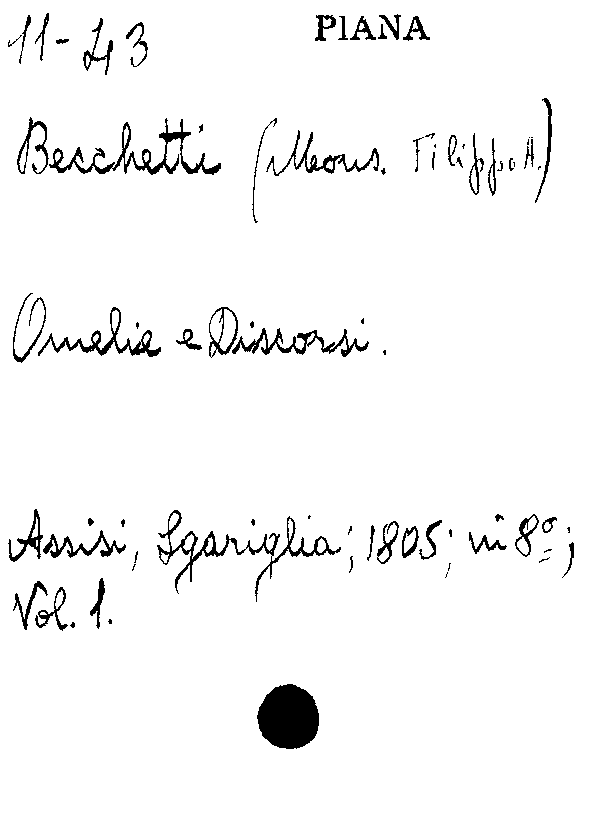 11-43
PIANA
Becchetti (Mons. Filippo A.)
Omelie e Discorsi.
Assisi, Sgariglia; 1805; in 8º;
Vol. 1.